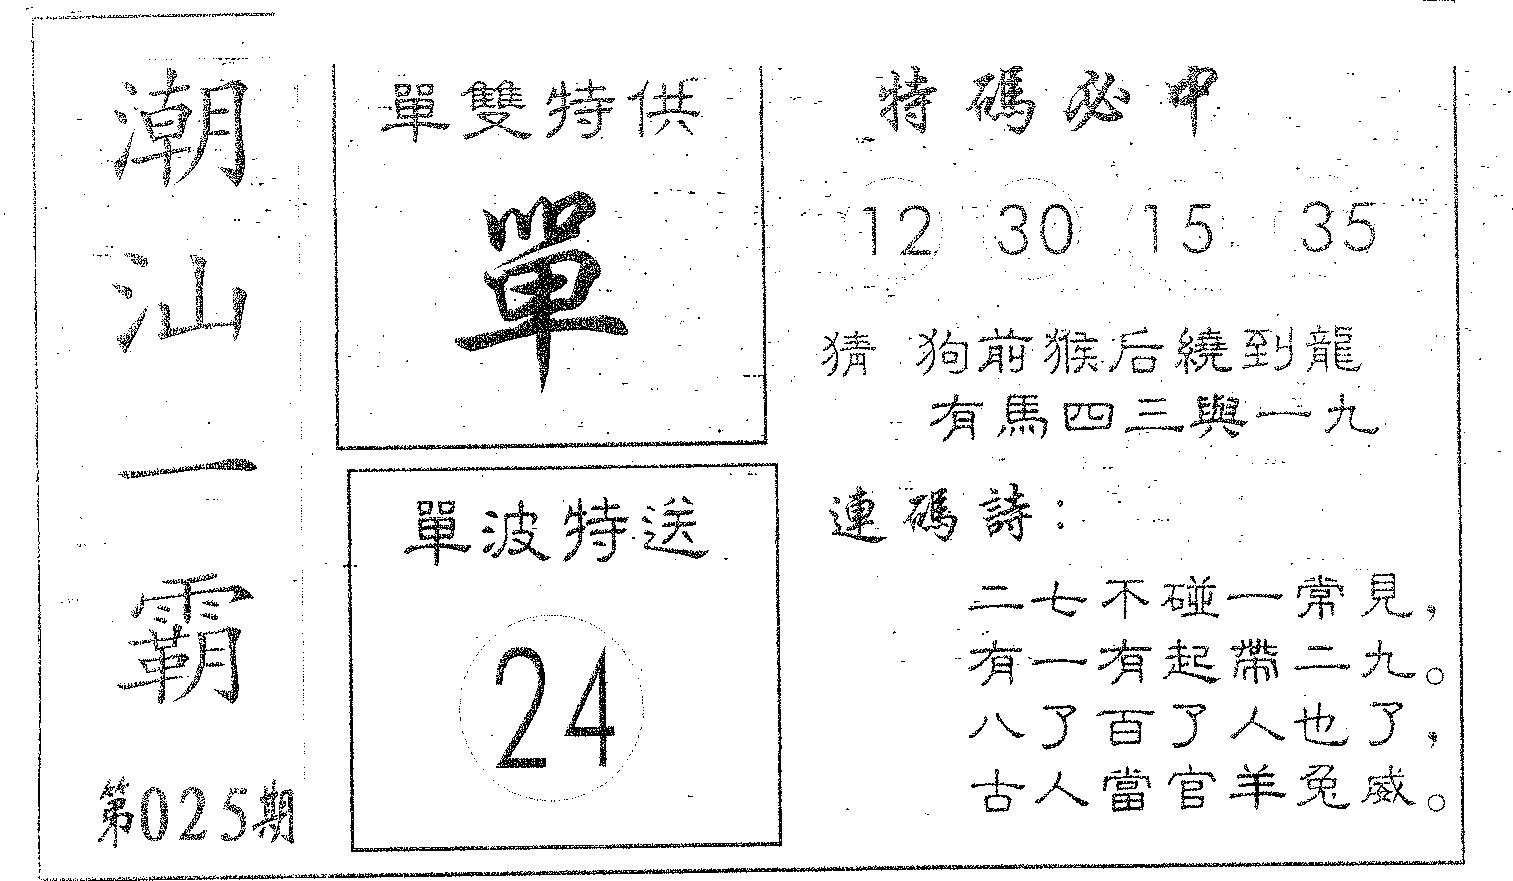 潮汕一霸
第025期
單雙特供
單
單波特送
24
特碼必中
12 30 15 35
猜 狗前猴后繞到龍
有馬四三與一九
連碼詩：
二七不碰一常見，
有一有起帶二九。
八了百了人也了，
古人當官羊兔威。